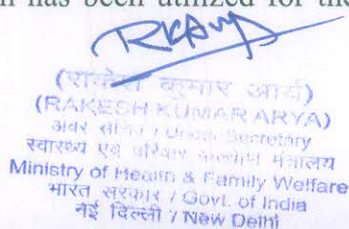 has been utilized for the
RKArya
(राकेश कुमार आर्य)
(RAKESH KUMAR ARYA)
अवर सचिव / Under Secretary
स्वास्थ्य एवं परिवार कल्याण मंत्रालय
Ministry of Health & Family Welfare
भारत सरकार / Govt. of India
नई दिल्ली / New Delhi